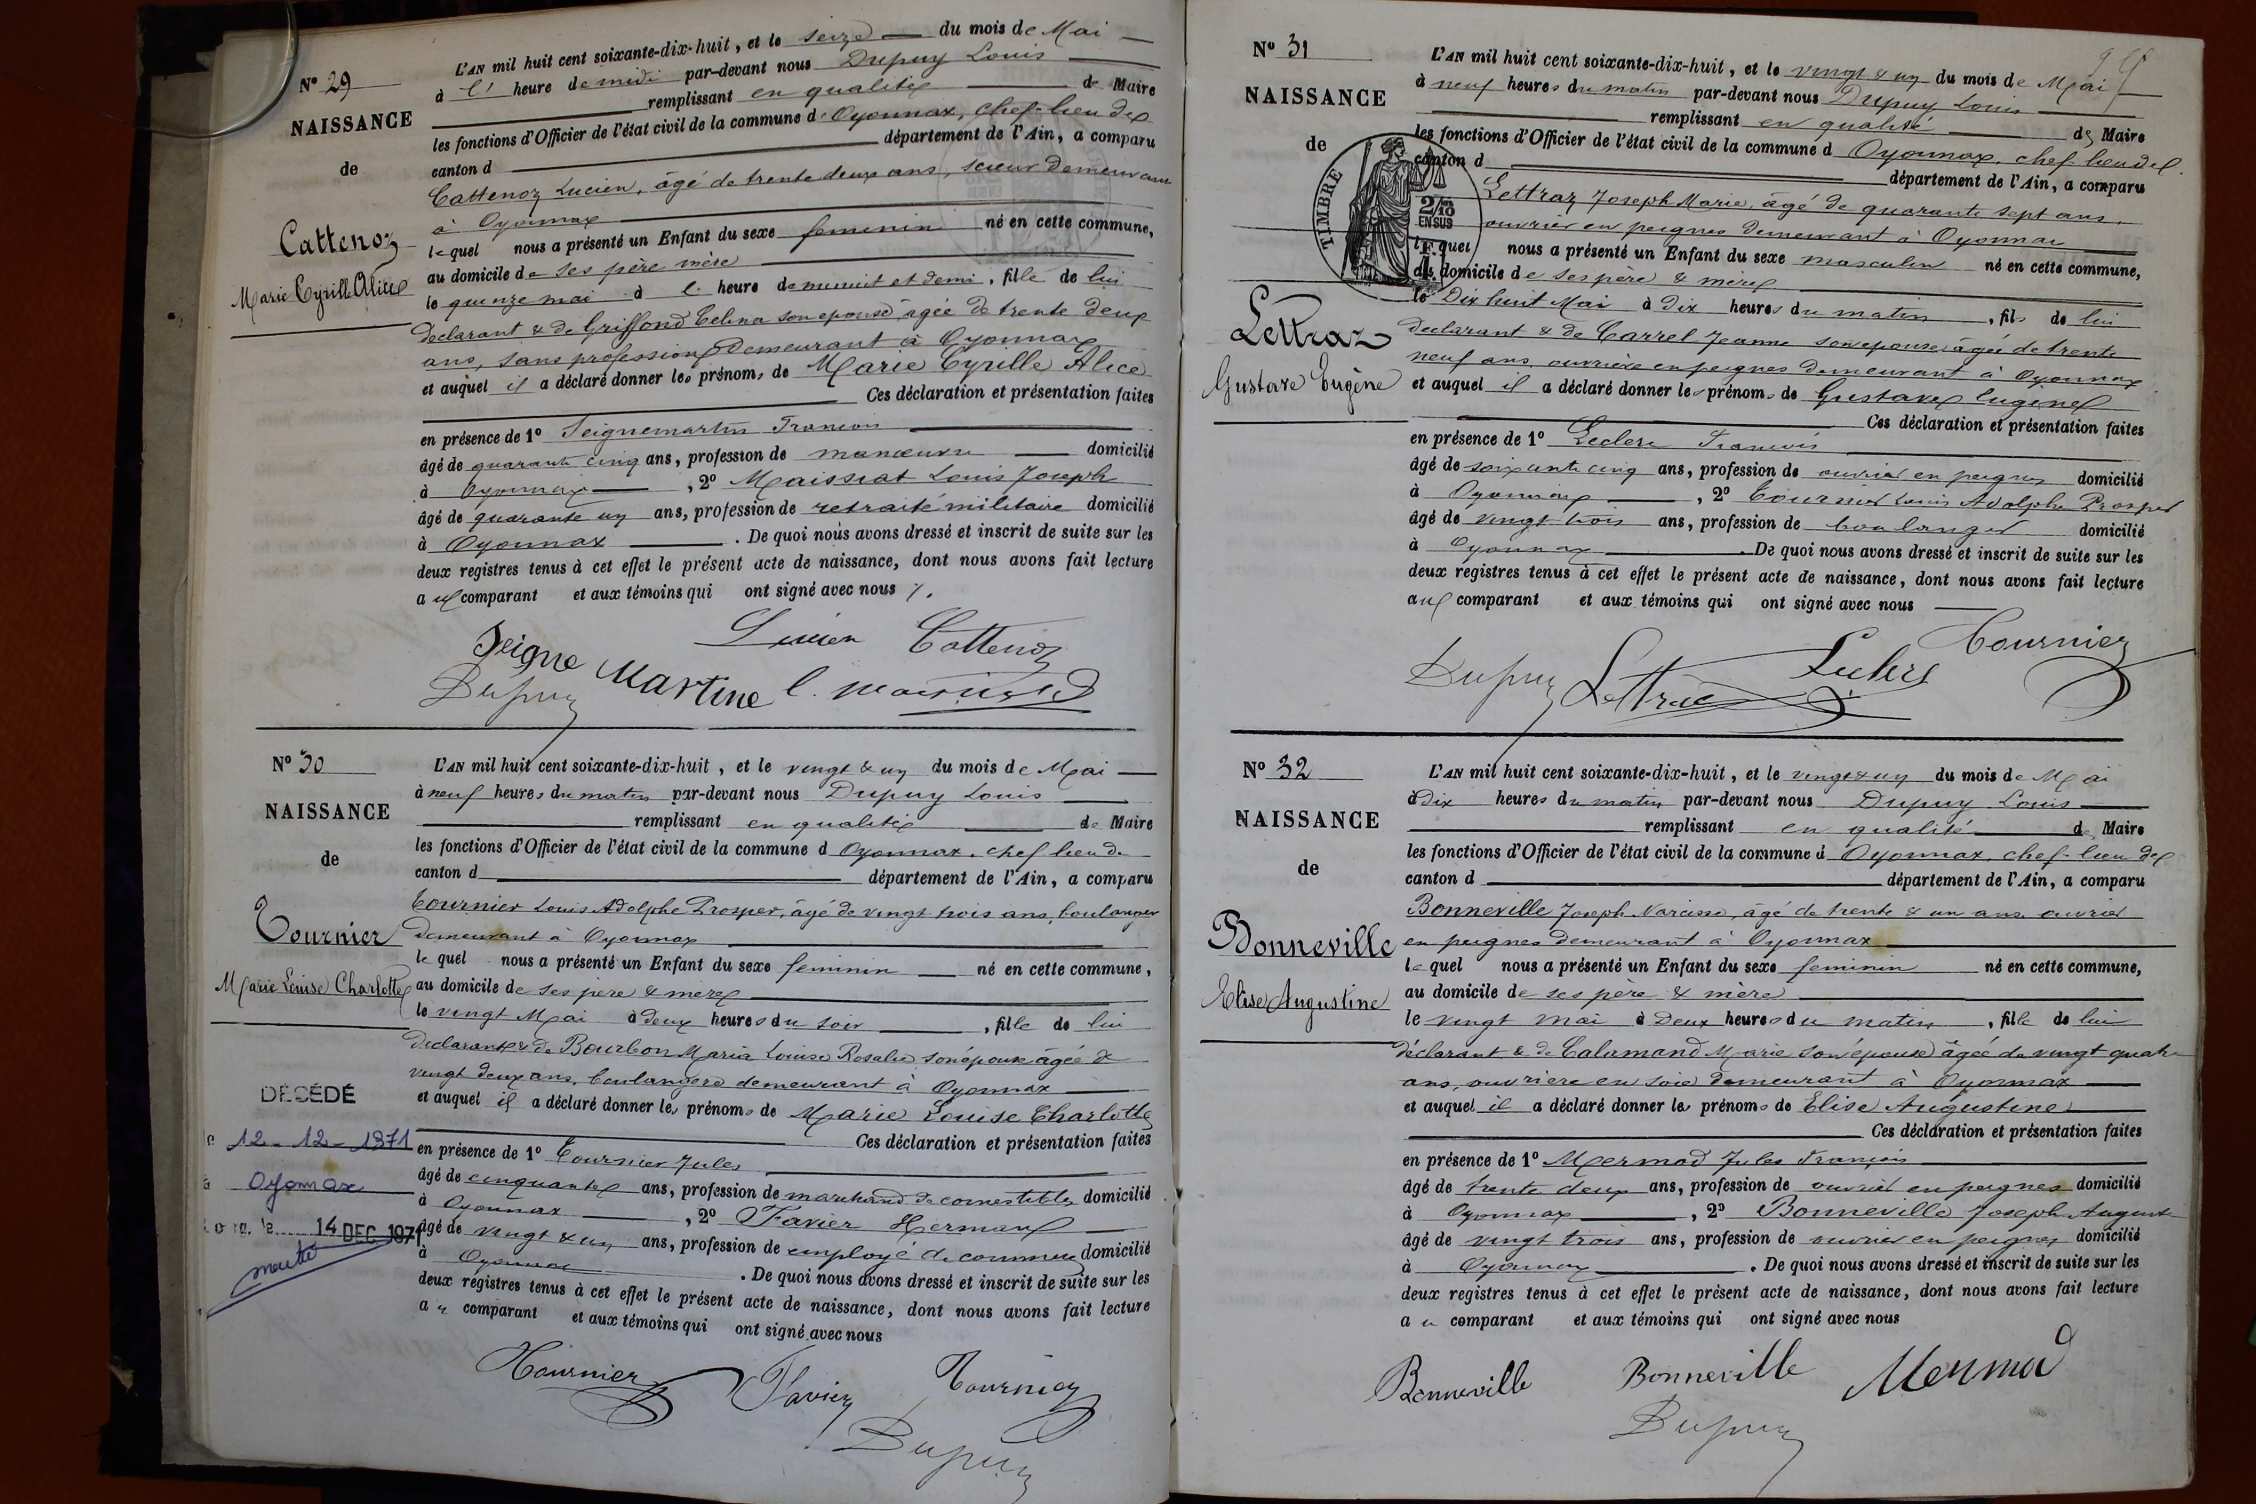 N° 29
NAISSANCE
de
Cattenoz
Marie Cyrille Alice
L'AN mil huit cent soixante-dix-huit, et le seize du mois de Mai
à l' heure de midi par-devant nous Dupuy Louis
remplissant en qualité de Maire
les fonctions d'Officier de l'état civil de la commune d'Oyonnax, chef-lieu de
canton d département de l'Ain, a comparu
Cattenoz Lucien, âgé de trente deux ans, scieur demeurant
à Oyonnax
lequel nous a présenté un Enfant du sexe feminin né en cette commune,
au domicile de ses père mère
le quinze mai à l' heure de minuit et demi, fille de lui
déclarant & de Griffond Celina son epouse, agée de trente deux
ans, sans profession demeurant à Oyonnax
et auquel il a déclaré donner les prénoms de Marie Cyrille Alice
Ces déclaration et présentation faites
en présence de 1° Seignemartin François
âgé de quarante cinq ans, profession de manœuvre domicilié
à Oyonnax, 2° Maissiat Louis Joseph
âgé de quarante un ans, profession de retraité militaire domicilié
à Oyonnax. De quoi nous avons dressé et inscrit de suite sur les
deux registres tenus à cet effet le présent acte de naissance, dont nous avons fait lecture
au comparant et aux témoins qui ont signé avec nous
Lucien Cattenoz
Seigne Martine
Dupuy
N° 30
NAISSANCE
de
Tournier
Marie Louise Charlotte
DÉCÉDÉ
le 12-12-1971
à Oyonnax
14 DEC 1971
L'AN mil huit cent soixante-dix-huit, et le vingt & un du mois de Mai
à neuf heures du matin par-devant nous Dupuy Louis
remplissant en qualité de Maire
les fonctions d'Officier de l'état civil de la commune d Oyonnax, chef lieu de
canton d département de l'Ain, a comparu
Tournier Louis Adolphe Prosper, âgé de vingt trois ans, boulanger
demeurant à Oyonnax
lequel nous a présenté un Enfant du sexe feminin né en cette commune,
au domicile de ses père & mère
le vingt Mai à deux heures du soir, fille de lui
déclarant & de Bourbon Maria Louise Rosalie son épouse âgée de
vingt deux ans, boulangère demeurant à Oyonnax
et auquel il a déclaré donner les prénoms de Marie Louise Charlotte
Ces déclaration et présentation faites
en présence de 1° Tournier Jules
âgé de cinquante ans, profession de marchand de comestibles domicilié
à Oyonnax, 2° Favier Hermann
âgé de vingt & un ans, profession de employé de commerce domicilié
à Oyonnax. De quoi nous avons dressé et inscrit de suite sur les
deux registres tenus à cet effet le présent acte de naissance, dont nous avons fait lecture
au comparant et aux témoins qui ont signé avec nous
Tournier Favier Tournier
Dupuy
N° 31
NAISSANCE
de
TIMBRE
2/10
EN SUS
Lettraz
Gustave Eugène
L'AN mil huit cent soixante-dix-huit, et le vingt & un du mois de Mai
à neuf heures du matin par-devant nous Dupuy Louis
remplissant en qualité de Maire
les fonctions d'Officier de l'état civil de la commune d Oyonnax, chef-lieu de
canton d département de l'Ain, a comparu
Lettraz Joseph Marie, âgé de quarante sept ans,
ouvrier en peignes demeurant à Oyonnax
lequel nous a présenté un Enfant du sexe masculin né en cette commune,
au domicile de ses père & mère
le Dix huit Mai à dix heures du matin, fils de lui
déclarant & de Carrel Jeanne son épouse âgée de trente
neuf ans, ouvrière en peignes demeurant à Oyonnax
et auquel il a déclaré donner les prénoms de Gustave Eugène
Ces déclaration et présentation faites
en présence de 1° Leclerc François
âgé de soixante cinq ans, profession de ouvrier en peignes domicilié
à Oyonnax, 2° Tournier Louis Adolphe Prosper
âgé de vingt trois ans, profession de boulanger domicilié
à Oyonnax. De quoi nous avons dressé et inscrit de suite sur les
deux registres tenus à cet effet le présent acte de naissance, dont nous avons fait lecture
au comparant et aux témoins qui ont signé avec nous
Tournier
Dupuy
N° 32
NAISSANCE
de
Bonneville
Elise Augustine
L'AN mil huit cent soixante-dix-huit, et le vingt & un du mois de Mai
à dix heures du matin par-devant nous Dupuy Louis
remplissant en qualité de Maire
les fonctions d'Officier de l'état civil de la commune d Oyonnax, chef-lieu de
canton d département de l'Ain, a comparu
Bonneville Joseph Narcisse, âgé de trente & un ans ouvrier
en peignes demeurant à Oyonnax
lequel nous a présenté un Enfant du sexe feminin né en cette commune,
au domicile de ses père & mère
le vingt mai à Deux heures du matin, fille de lui
déclarant & de Calamand Marie son épouse âgée de vingt quatre
ans, ouvrière en soie demeurant à Oyonnax
et auquel il a déclaré donner les prénoms de Elise Augustine
Ces déclaration et présentation faites
en présence de 1° Mermod Jules François
âgé de trente deux ans, profession de ouvrier en peignes domicilié
à Oyonnax, 2° Bonneville Joseph Auguste
âgé de vingt trois ans, profession de ouvrier en peignes domicilié
à Oyonnax. De quoi nous avons dressé et inscrit de suite sur les
deux registres tenus à cet effet le présent acte de naissance, dont nous avons fait lecture
au comparant et aux témoins qui ont signé avec nous
Bonneville Bonneville Mermod
Dupuy